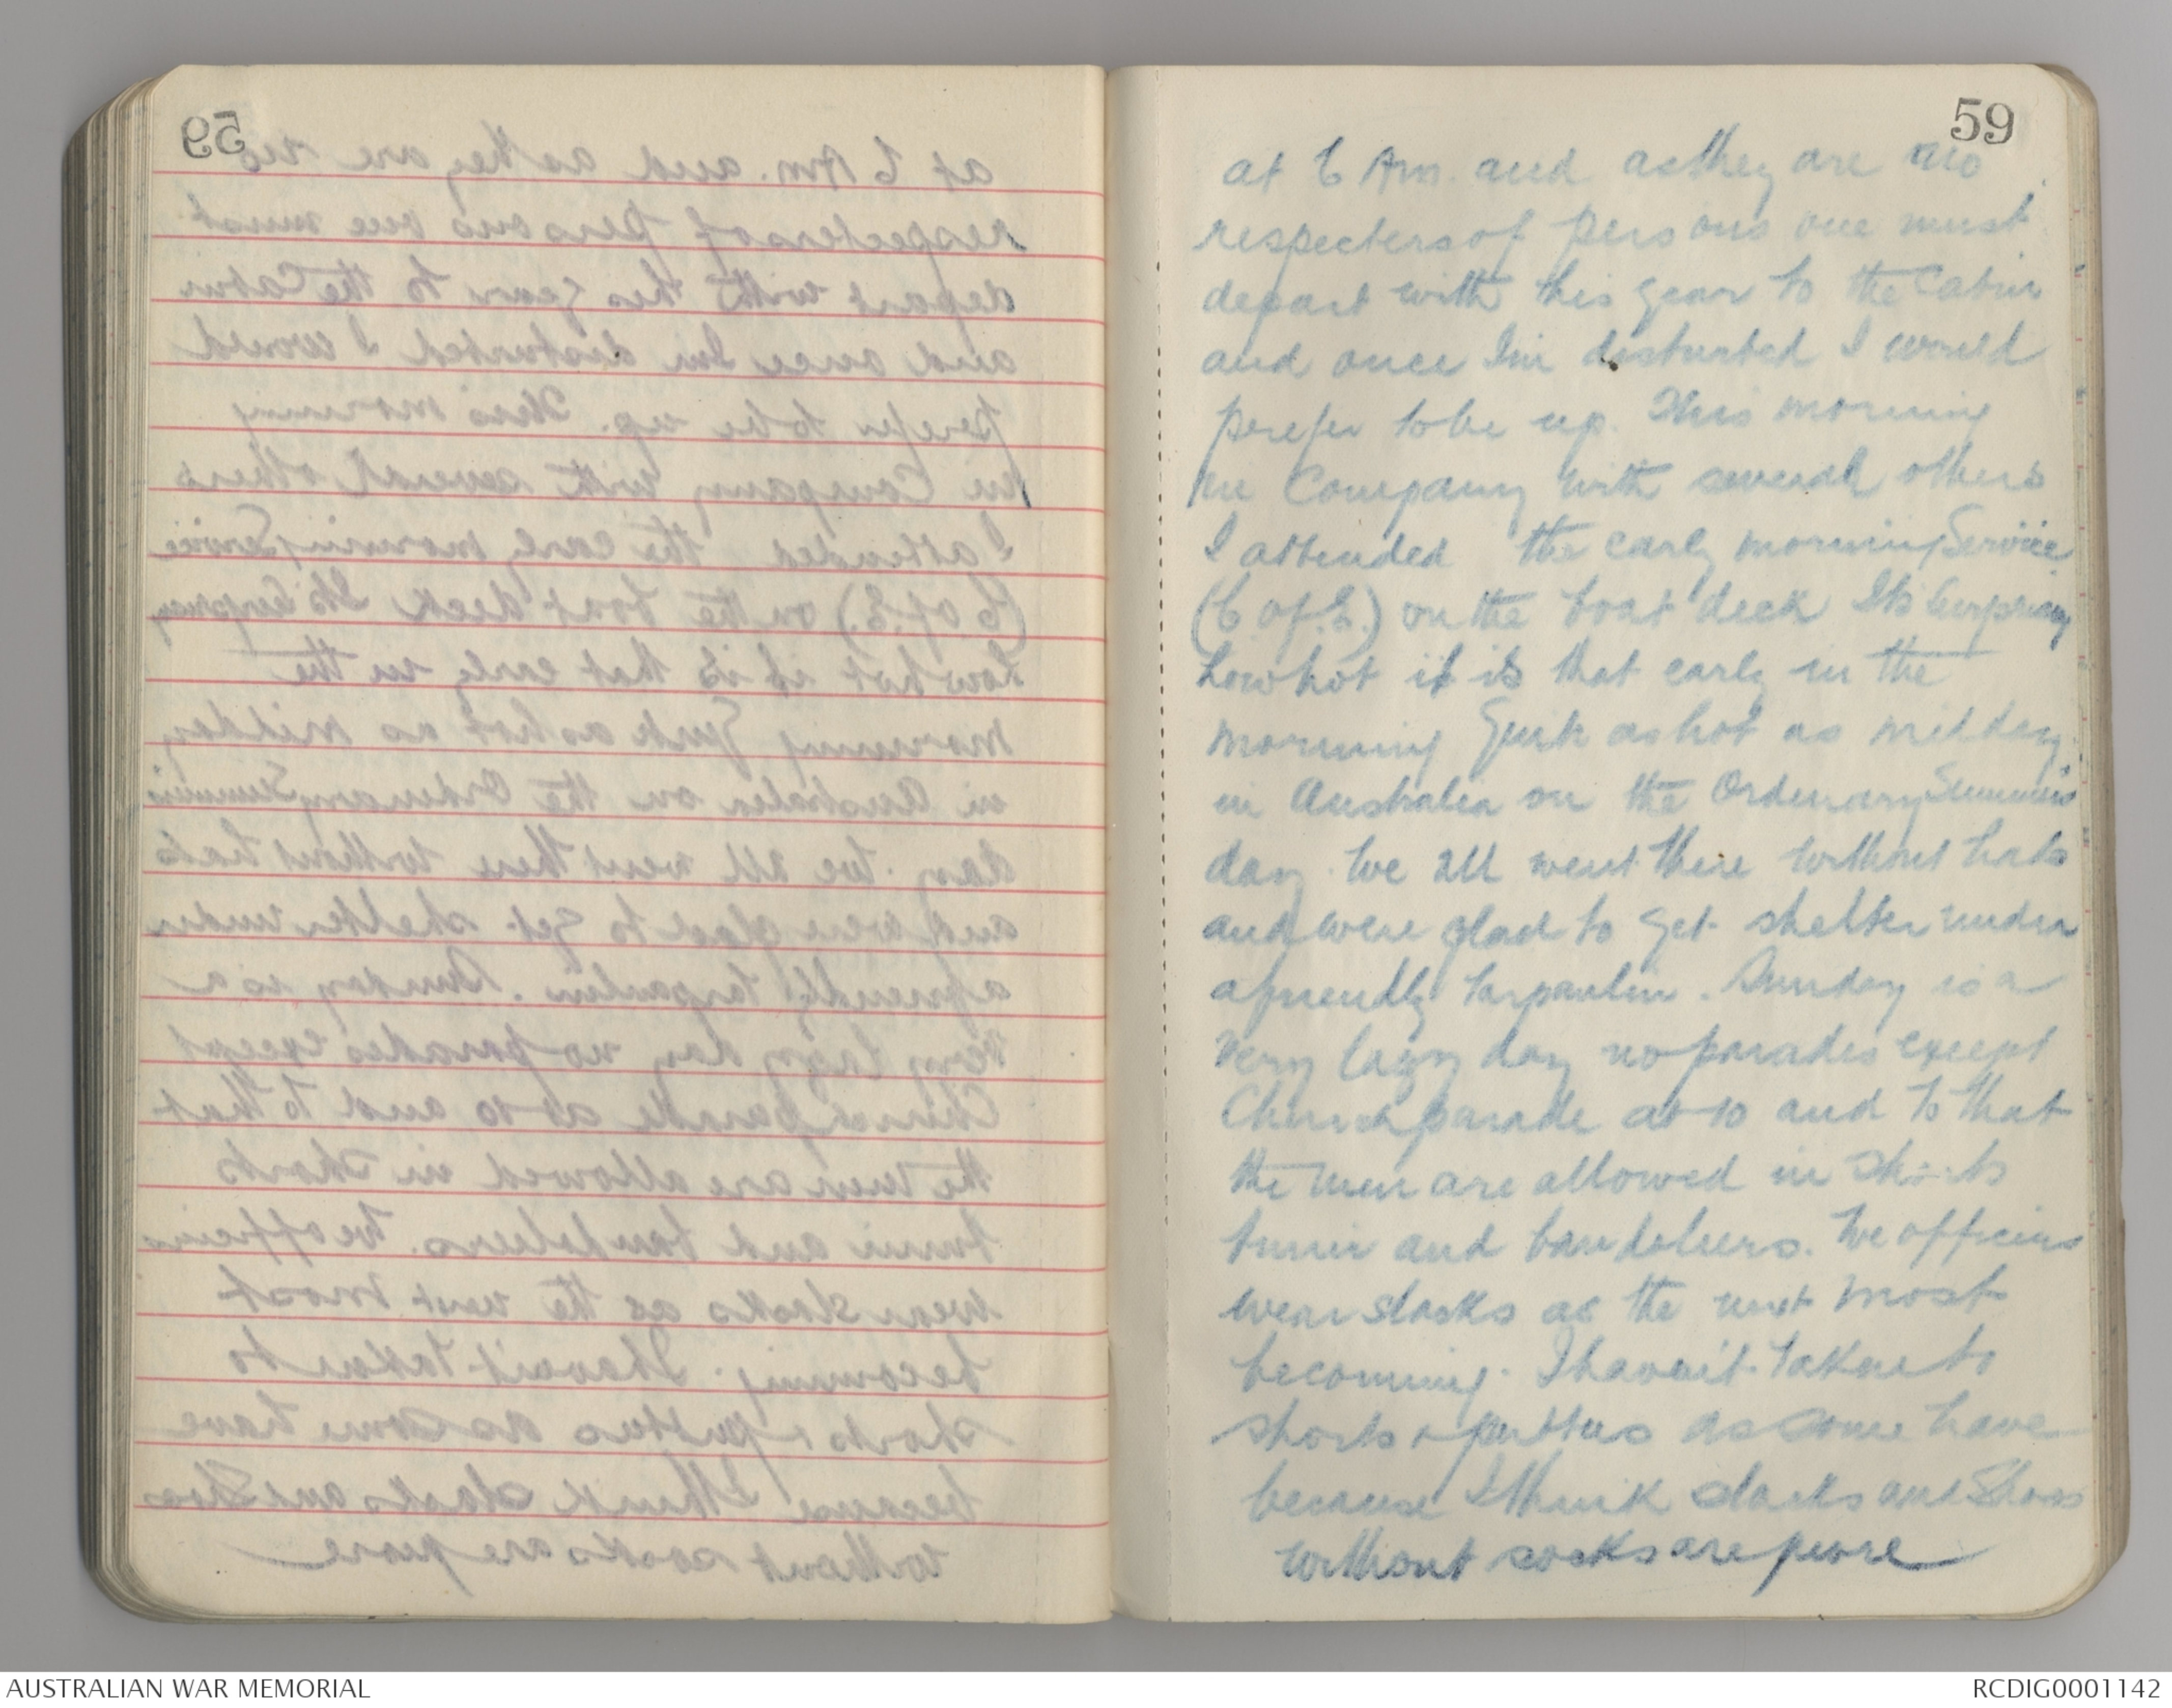 59
at 6 Am. and as they are no
respecters of persons one must
depart with his gear to the Cabin
and once Im disturbed I would
perefer to be up. This morning
in Company with several others
I attended the early morning Service
(C of. E.) on the boat deck Its Surprising
how hot it is that early in the
morning Quite as hot as midday
in Australia on the Ordinary Summers
day. We all went there without hats
and were glad to get shelter under
a friendly tarpaulin. Sunday is a
very lazy day no parades except
Church parade at 10 and to that
the men are allowed in shorts
tunic and bandoliers. We officers
wear slacks as the most
becoming. I havent taken to
shorts & puttees as some have
because I think slacks and Shoes
without socks are more
AUSTRALIAN WAR MEMORIAL
RCDIG0001142